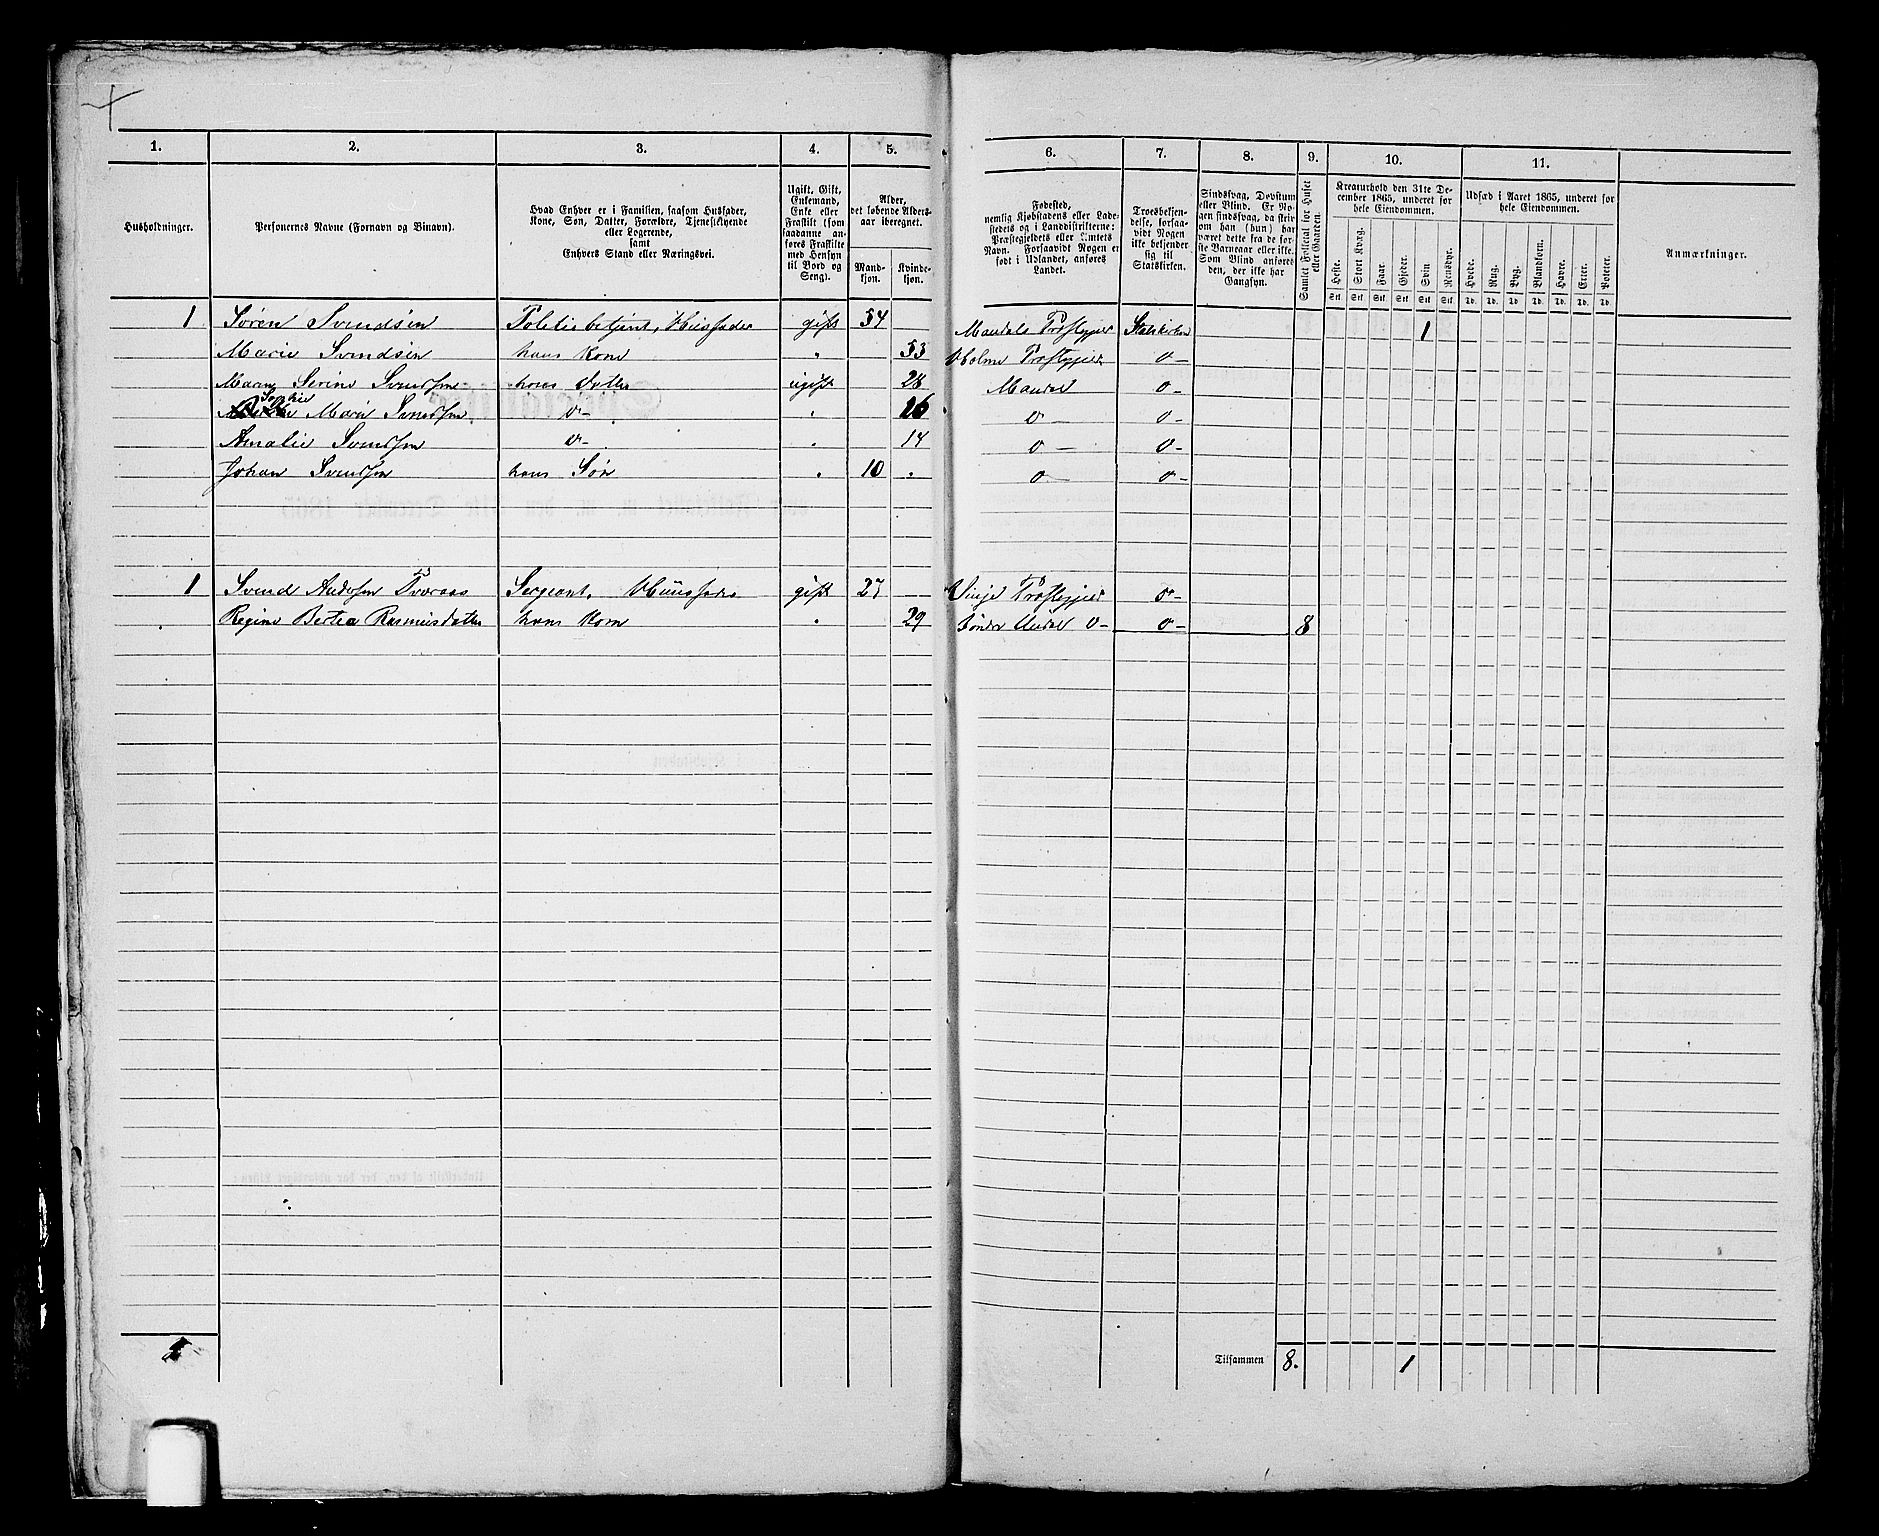 1. 2. 3. 4. 5. 6. 7. 8. 9. 10. 11.
Husholdninger.
Personernes Navne (Fornavn og Binavn).
Hvad Enhver er i Familien, saasom Husfader,
Kone, Søn, Datter, Forældre, Tjenestetyende
eller Logerende,
samt
Enhvers Stand eller Næringsvei.
Ugift, Gift,
Enkemand,
Enke eller
Fraskilt (som
saadanne an-
føres Fraskilte
med Hensyn
til Bord og
Seng).
Alder,
det løbende Alders-
aar iberegnet.
Mand-
kjøn.
Kvinde-
kjøn.
Fødested,
nemlig Kjøbstadens eller Lade-
stedets og i Landdistrikterne:
Præstegjeldets eller Amtets
Navn. Forsaavidt Nogen er
født i Udlandet, anføres
Landet.
Troesbekjen-
delse, forsaa-
vidt Nogen
ikke bekjender
sig til
Statskirken.
Sindssvag, Døvstum
eller Blind. Er No-
gen sindssvag, da skriv
om han (hun) har
været dette fra de før-
ste Barneaar eller ikke.
Som Blind anføres
den, der ikke har
Gangsyn.
Samlet Folketal for Huset
eller Gaarden.
Kreaturhold den 31te De-
cember 1865, underet for
hele Eiendommen.
Heste. Stort Kvæg. Faar. Gjeder. Svin Rensdyr.
Stk. Stk. Stk. Stk. Stk. Stk.
Udsæd i Aaret 1865, underet for
hele Eiendommen.
Hvede. Rug. Byg. Blandkorn. Havre. Erter. Poteter.
Td. Td. Td. Td. Td. Td. Td.
Anmærkninger.
1 Søren Svendsen Politiebetjent, Huusfader gift 54 Mandals Præstegjeld Statskirken 1
Marie Svendsen hans Kone " 53 Holme Præstegjeld v-
Maren Serine Svendsen hans Datter ugift 28 Mandal v-
Sophie
Marie Svendsen v- " 26 v- v-
Amalie Svendsen v- " 14 v- v-
Johan Svendsen hans Søn " 10 v- v-
1 Svend Andersen Tveraas Sergeant, Huusfader gift 27 Vinje Præstegjeld v-
Regine Bertea Rasmusdatter hans Kone " 29 Søndre Undal v- v- 8
2 Tilsammen 8. 1